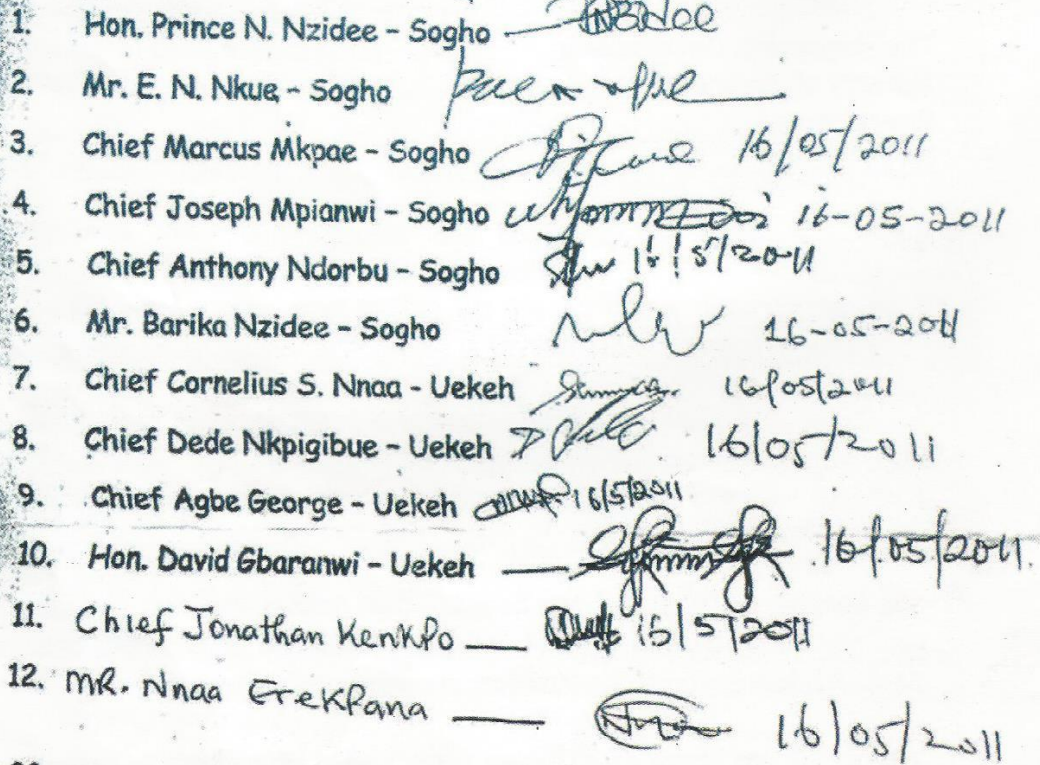 1. Hon. Prince N. Nzidee - Sogho
2. Mr. E. N. Nkue - Sogho
3. Chief Marcus Mkpae - Sogho 16/05/2011
4. Chief Joseph Mpianwi - Sogho 16-05-2011
5. Chief Anthony Ndorbu - Sogho 16/5/2011
6. Mr. Barika Nzidee - Sogho 16-05-2011
7. Chief Cornelius S. Nnaa - Uekeh 16/05/2011
8. Chief Dede Nkpigibue - Uekeh 16/05/2011
9. Chief Agbe George - Uekeh 16/5/2011
10. Hon. David Gbaranwi - Uekeh 16/05/2011
11. Chief Jonathan Kenkpo 16/5/2011
12. MR. Nnaa Erekpana 16/05/2011